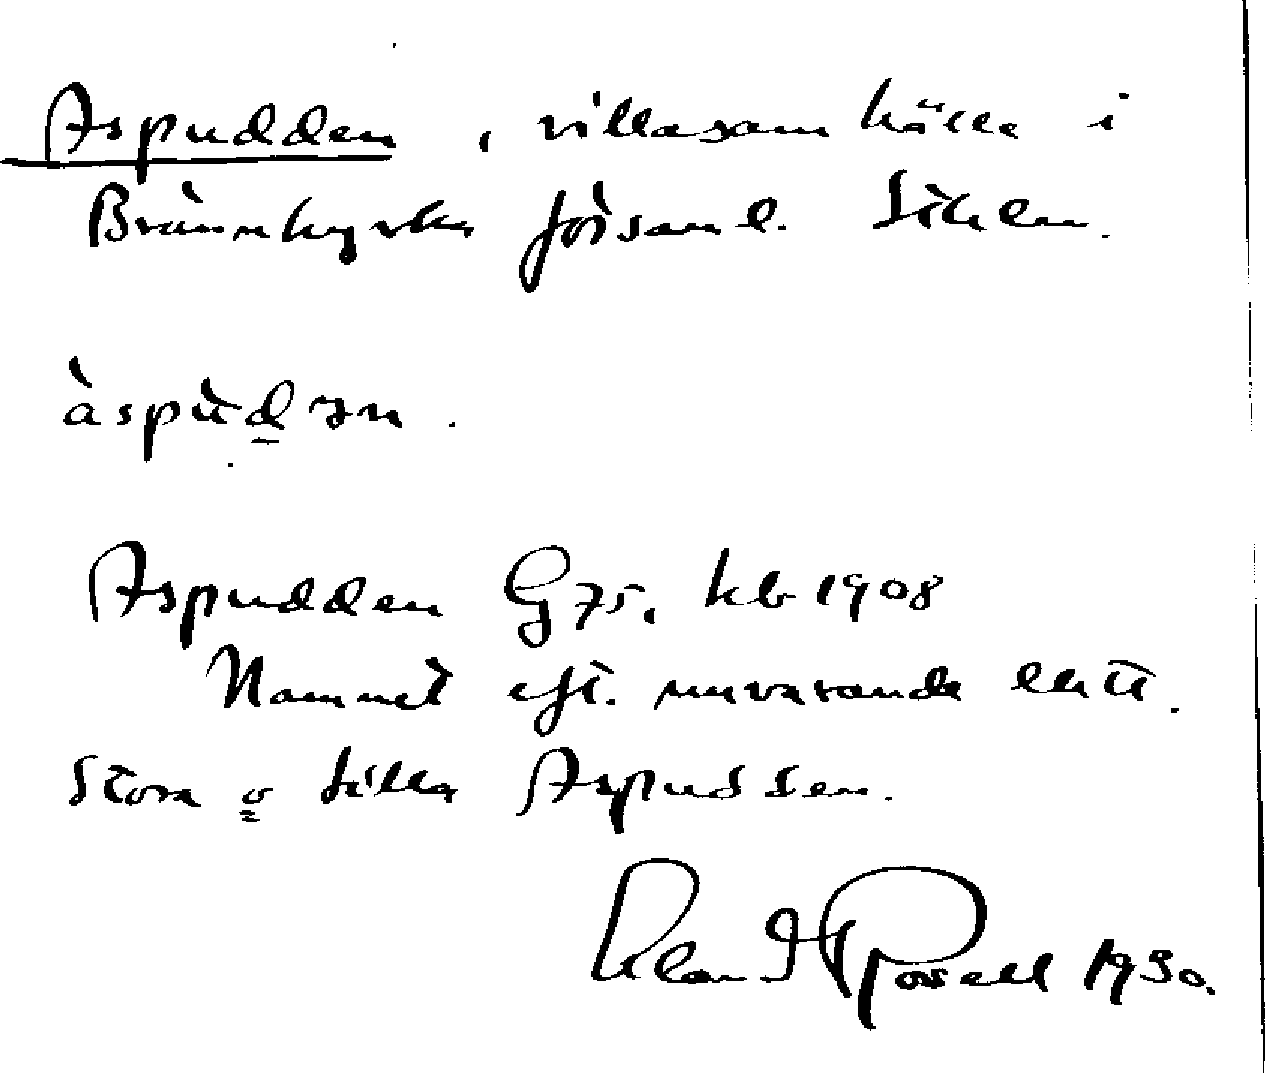 Aspudden, villasamhälle i
Brännkyrka församl. Sthlm.
àspùdən.
Aspudden G 75. kb 1908
Namnet eft. nuvarande
Stora o Lilla Aspudden.
1930.